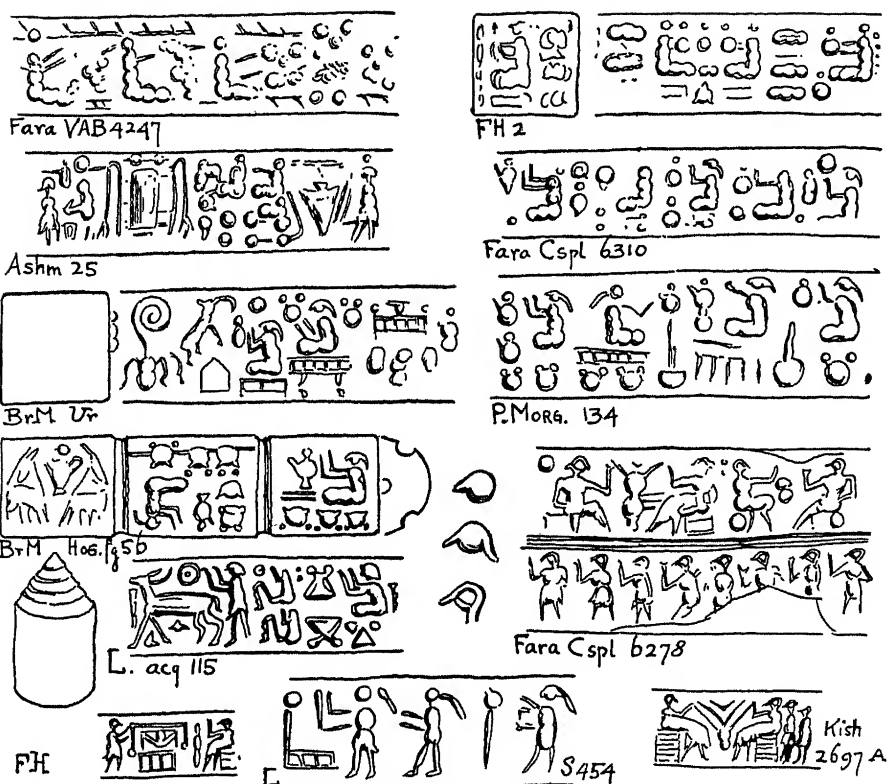 Fara VAB 4247
FH 2
Ashm 25
Fara Cspl 6310
BrM Ur
P.MORG. 134
BrM HOG. fg 5b
L. acq 115
Fara Cspl 6278
FH
L
S 454
Kish
2697 A